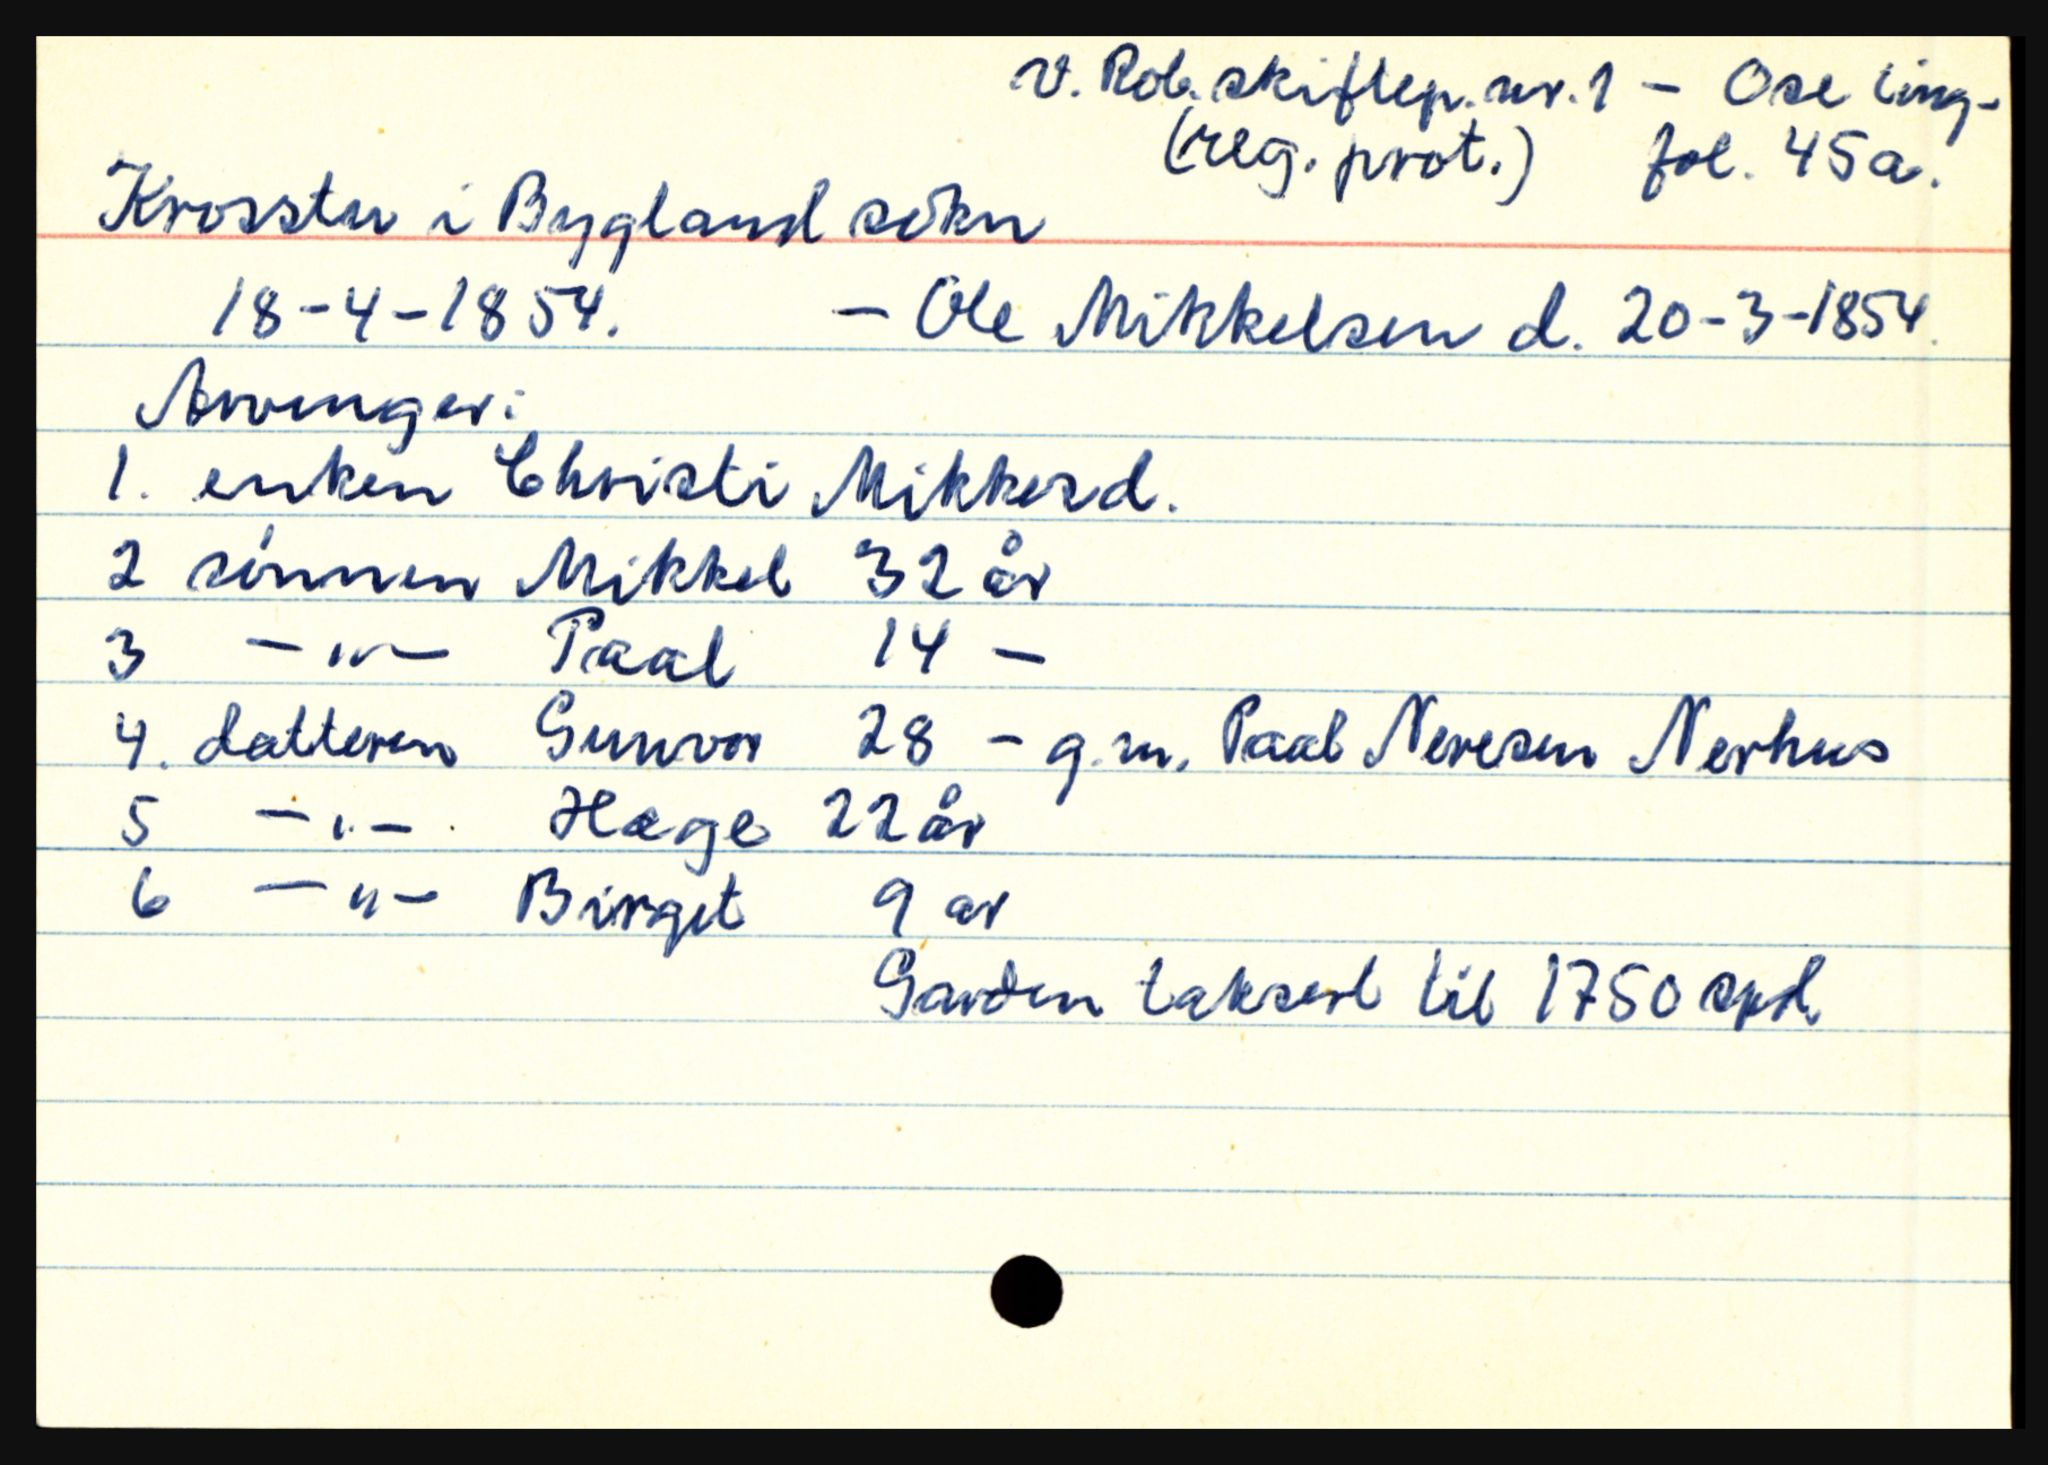 V. Rob. skiftep. nr. 1 – Ose ting-
(reg. prot.) fol. 45a.
Krosstu i Bygland sókn
18-4-1854. – Ole Mikkelsen d. 20-3-1854.
Arvinger:
1. enken Christi Mikkesd.
2 sónnen Mikkel 32 år
3 –"– Paal 14 –
4. datteren Gunvor 28 – g.m. Paal Neresen Nerhus
5 –"– Hæge 22 år
6 –"– Birget 9 ar
Garden taksert til 1750 spd.